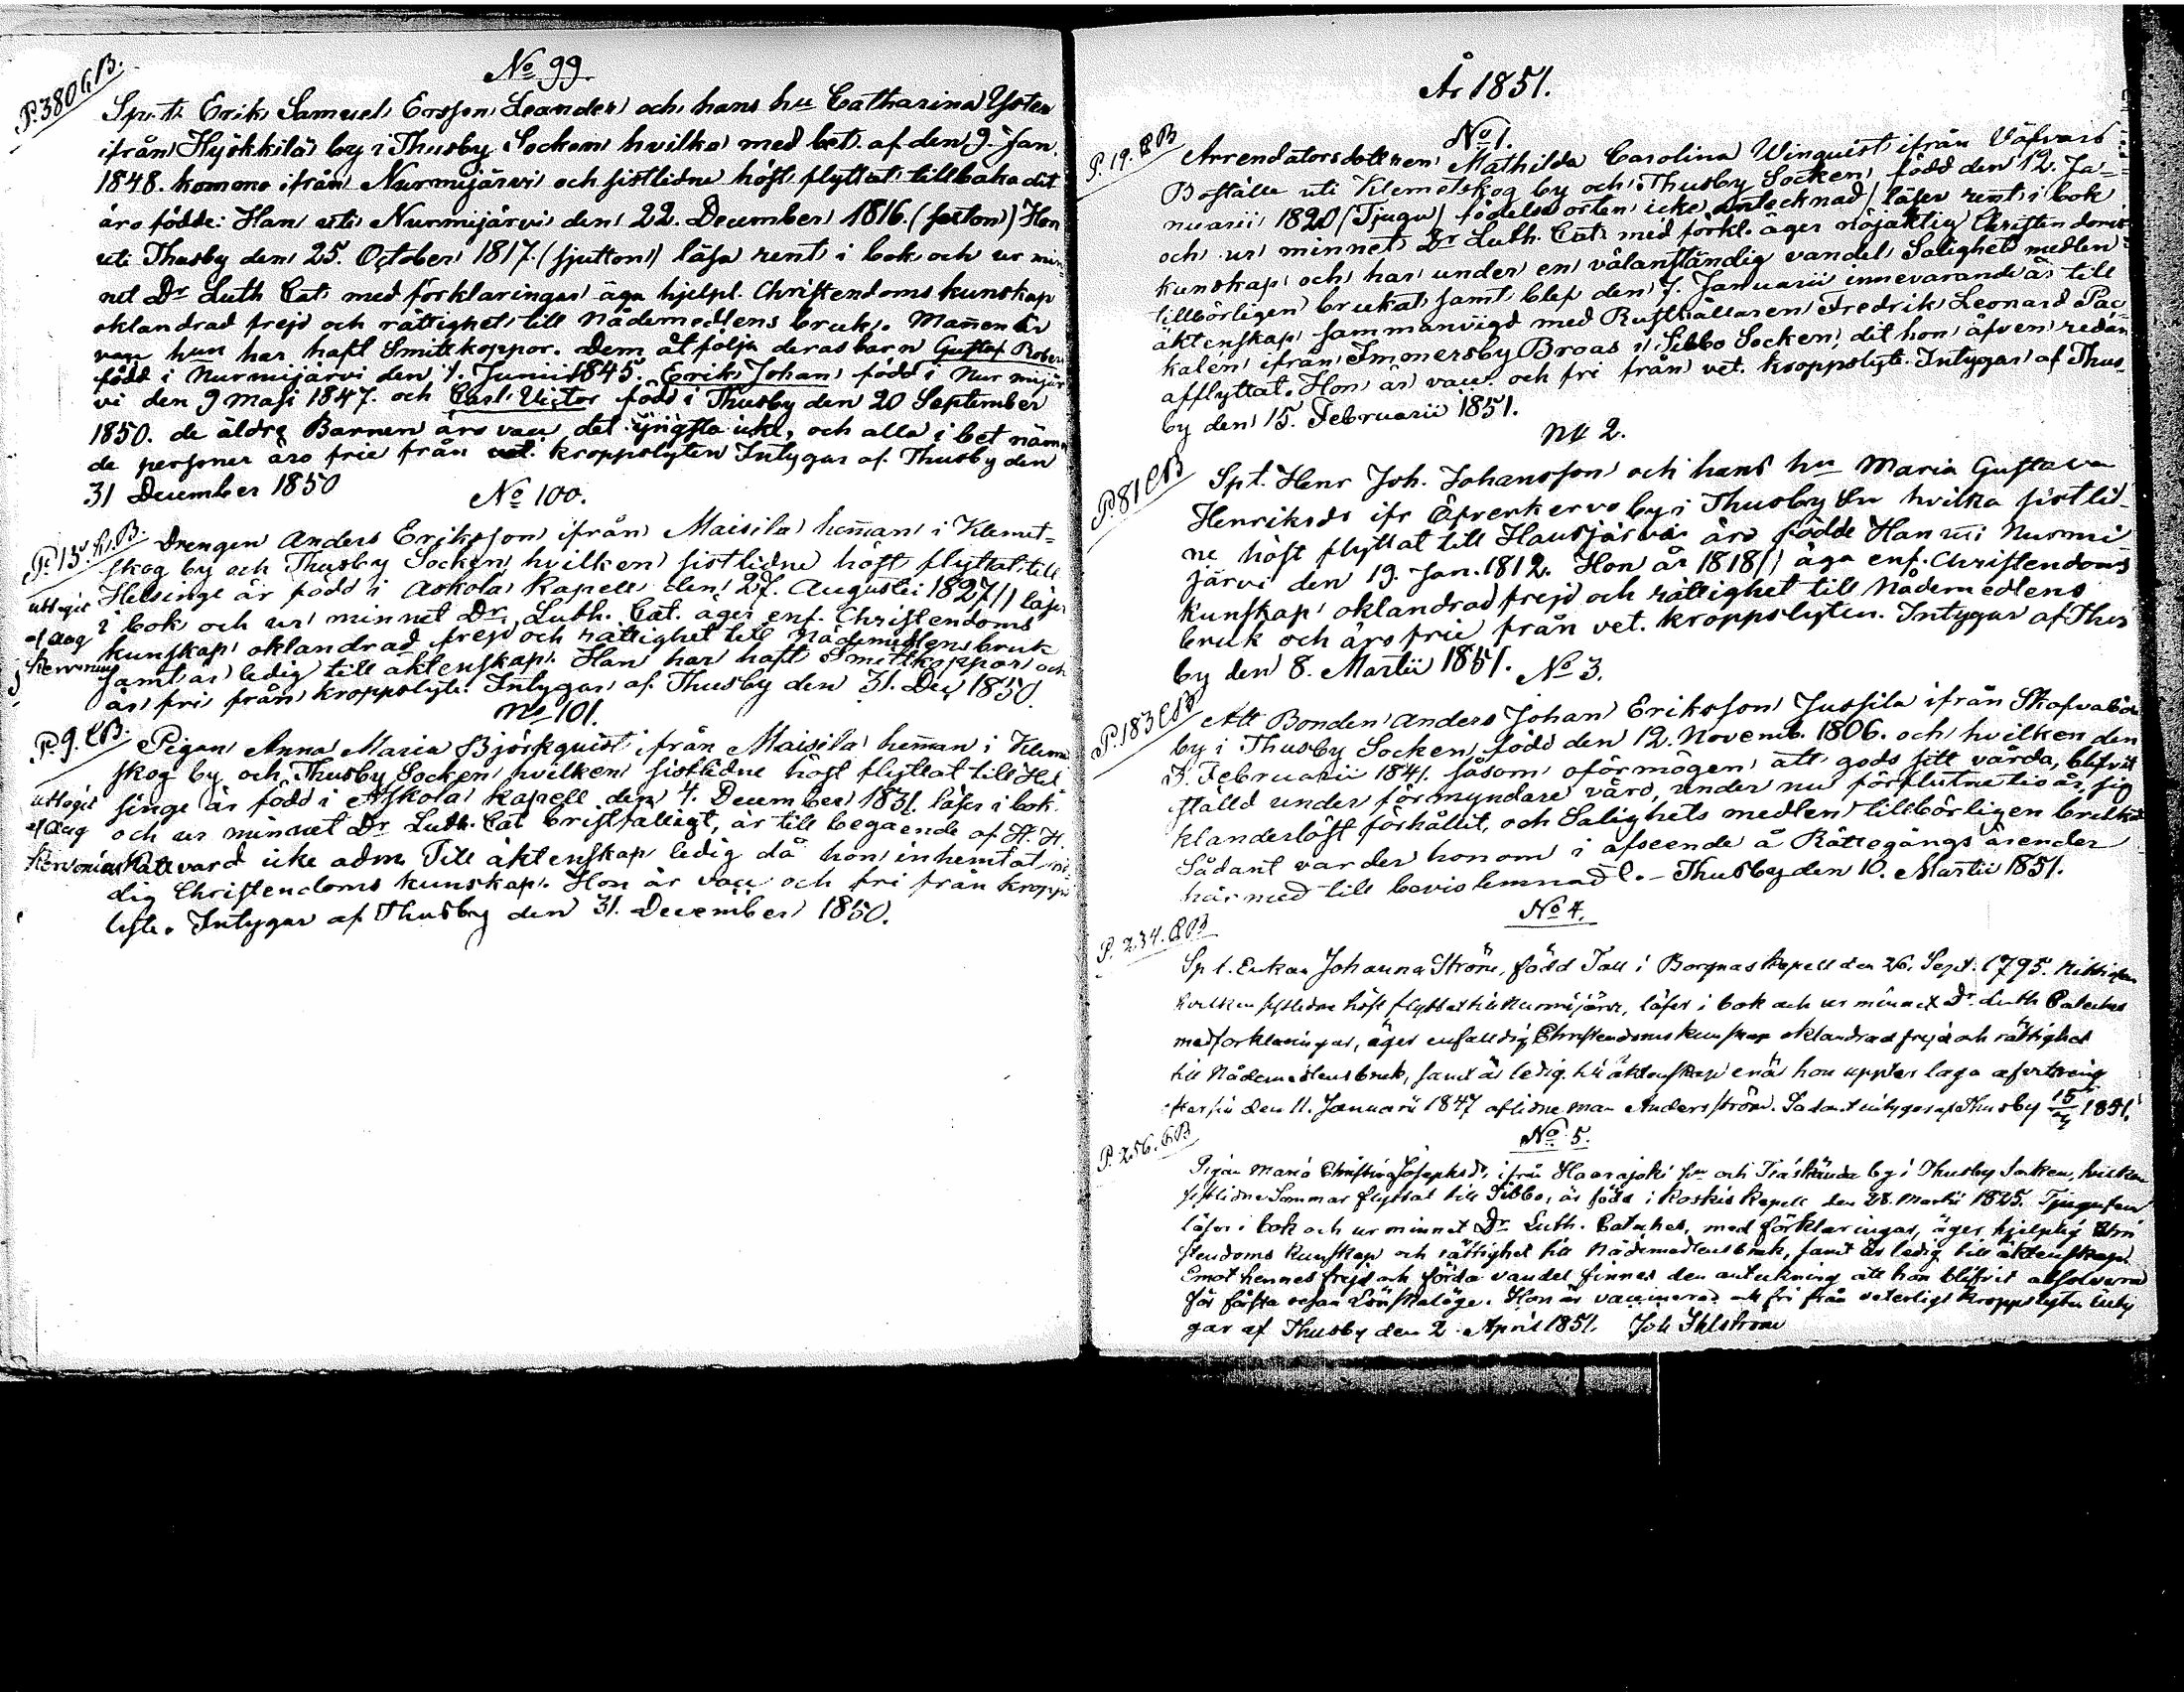 No 99.
P. 380 C.B.
Sp. t. Erik Samuel Ersson Leander och hans hu Catharina
ifrån Hyökkilä by i Thusby Socken hvilka med bet. af den 9. Jan.
1848. komme ifrån Nurmijärvi och sistlidne höst flyttat tillbaka dit
äro födde: Han uti Nurmijärvi den 22. December 1816. (sexton) Hon
uti Thusby den 25. October 1817. (sjutton) läsa rent i bok och ur min-
net Dr Luth Cat. med förklaringar äga hjelpl. Christendoms kunskap
oklandrad frejd och rättighet till Nådemedlens bruk. Mannen är
vac hun har haft Smittkoppor. Dem åtfölja deras barn Gustaf Robert
född i Nurmijärvi den 1. Junii 1845. Erik Johan född i Nurmijär
vi den 9 Maji 1847. och Carl Victor född i Thusby den 20 September
1850. de äldre Barnen äro vac det yngsta icke, och alla i bet näm
de personer äro frie från vet. kroppslyten Intygar af. Thusby den
31 December 1850
No 100.
P. 15. C.B.
Drengen Anders Eriksson ifrån Maisila heman i Klemet-
skog by och Thusby Socken hvilken sistlidne höst flyttat till
Helsinge är född i Askola Kapell den 27. Augusti 1827 läser
uttagit
i bok och ur minnet Dr Luth. Cat. äger enf. Christendoms
af Aug
kunskap oklandrad frejd och rättighet till Nådemedlens bruk
samt är ledig till äktenskap. Han har haft Smittkoppor och
är fri från kroppslyte. Intygar af. Thusby den 31. Dec 1850.
No 101.
P. 9. C.B.
Pigan Anna Maria Björkquist ifrån Maisila heman i Kleme
skog by och Thusby Socken hvilken sistlidne höst flyttat till Hel
uttagit
singe är född i Askola Kapell den 4. December 1831. läser i bok
af Aug
och ur minnet Dr Luth. Cat bristfälligt, är till begående af H. H.
Nattvard icke adm. Till äktenskap ledig då hon inhemtat nö
dig Christendoms kunskap. Hon är vac och fri från kropps
lyte. Intygar af Thusby den 31. December 1850.
År 1851.
No 1.
P. 19. C.B
Arrendatorsdottren Mathilda Carolina Winquist ifrån Väfvars
Boställe uti Klemetskog by och Thusby Socken, född den 12. Ja-
nuarii 1820 (Tjugu) födelse orten icke antecknad läser rent i bok
och ur minnet Dr Luth. Cat. med förkl. äger nöjaktig Christendoms
kunskap och har under en välanständig vandel Salighets medlen
tillbörligen brukat samt blef den 7. Januarii innevarande år till
äktenskap sammanvigd med Rusthållaren Fredrik Leonard Pac-
kalén ifrån Immersby Broas i Sibbo Socken, dit hon äfven redan
afflyttat. Hon är vacc. och fri från vet. kroppslyte. Intygar af Thus
by den 15. Februarii 1851.
No 2.
P. 81 C.B
Spt. Henr Joh. Johansson och hans hu Maria Gustava
Henriksdr ifr by i Thusby Sn hvilka sistlid-
ne höst flyttat till Hausjärvi äro födde Han uti Nurmi-
järvi den 19. Jan. 1812. Hon år 1818 äga enf. Christendoms
kunskap oklandrad frejd och rättighet till Nådemedlens
bruk och äro frie från vet. kroppslyten. Intygar af Thus
by den 8. Martii 1851.
No 3.
P. 183 C.B
Att Bonden Anders Johan Eriksson Jussila ifrån Skafvaböle
by i Thusby Socken, född den 12. Novemb. 1806. och hvilken den
Februarii 1841. såsom oförmögen att gods sitt vårda, blifvit
ställd under förmyndare vård, under nu förflutne tio år, sig
klanderlöst förhållit, och Salighets medlen tillbörligen brukat
Sådant varder honom i afseende å Rättegångs ärender
härmed till bevis lemnadt. - Thusby den 10. Martii 1851.
No 4.
P. 234. C.B
Sp t. Enkan Johanna Ström, född Tall i Borgnäs Kapell den 26. Sept. 1795.
hvilken sistlidne höst flyttat till Nurmijärvi, läser i bok och ur minnet Dr. Luth Cateches
med förklaringar, äger enfaldig Christendoms kunskap oklandrad frejd och rättighet
till Nådemedlens bruk, samt är ledig till äktenskap enär hon laga
efter sin den 11. Januarii 1847 aflidne man Anders Ström. Sådant intygas af Thusby 15/3 1851.
No 5.
P. 256. C.B
Pigan Maria Christina Josephsdr. ifrån Haarajoki hn och Träskända by i Thusby Socken, hvilken
sistlidne Sommar flyttat till Sibbo, är född i Koskis Kapell den 28. Martii 1825. Tjugufem
läser i bok och ur minnet Dr Luth. Cateches, med förklaringar, äger hjelplig Chri
stendoms kunskap och rättighet till Nådemedlens bruk, samt är ledig till äktenskap
Emot hennes frejd och förda vandel finnes den anteckning att hon blifvit absolverad
för första resan Lönskaläge. Hon är vaccinerad och fri från veterligt kroppslyte Inty
gar af Thusby den 2 April 1851. Joh Ihlström